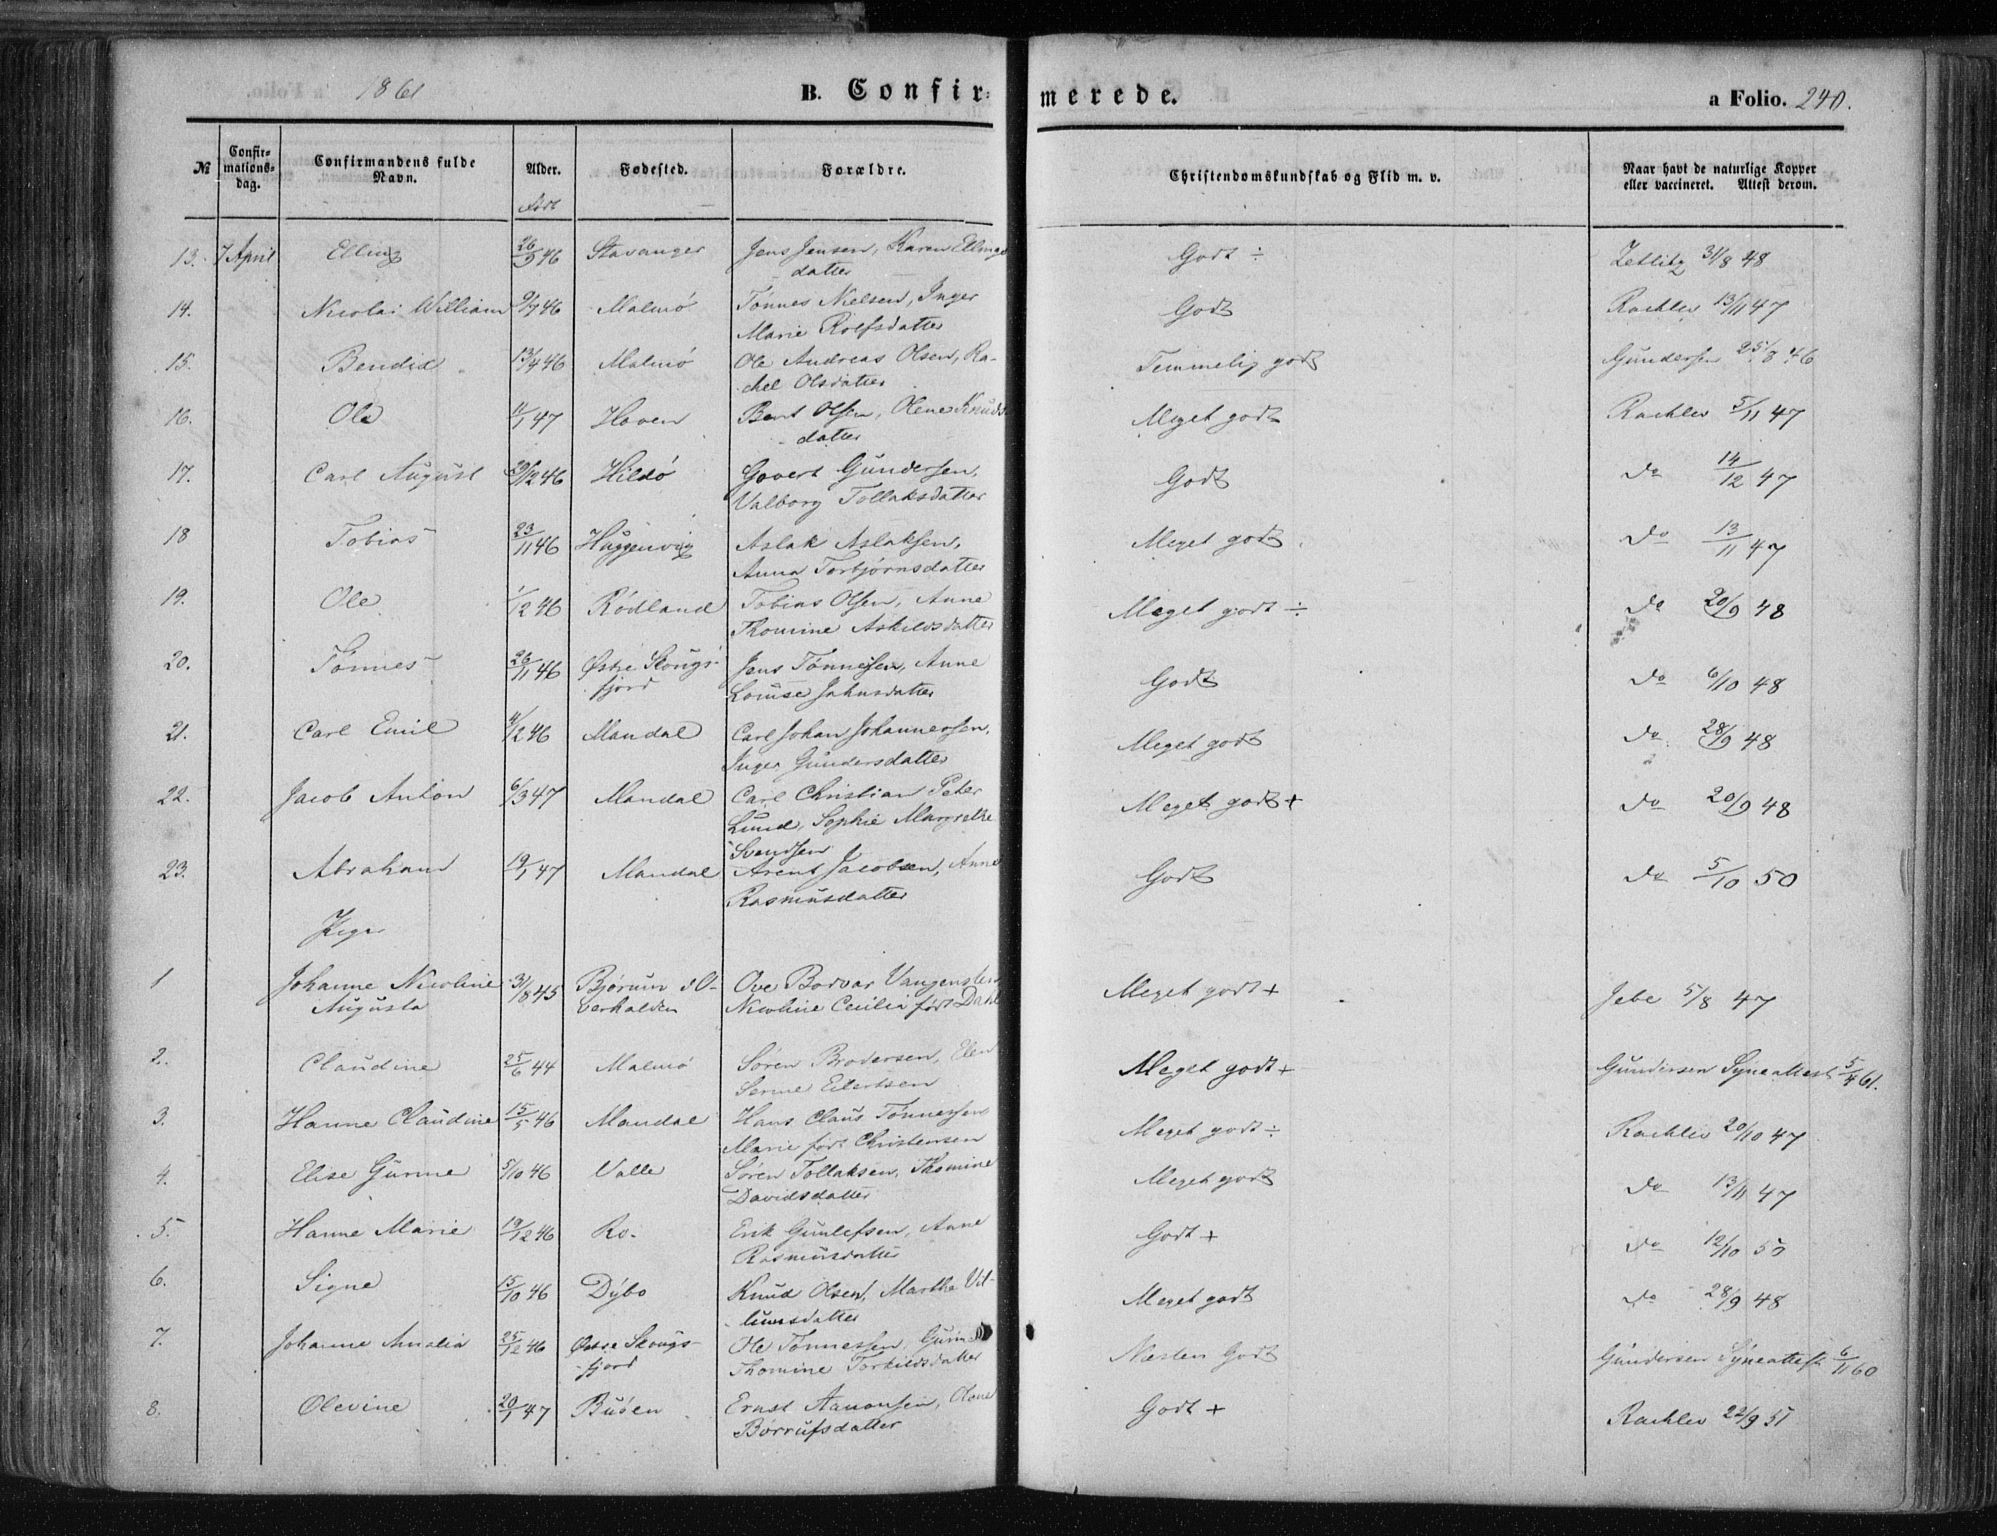 1861 B. Confirmerede. a Folio. 240.
№ Confirmationsdag. Confirmandens fulde Navn. Alder. Fødested. Forældre. Christendomskundskab og Flid m. v. Naar havt de naturlige Kopper eller vaccineret. Attest derom.
13. 7 April Elling 26/9 46 Stavanger Jens Jensen, Karen Ellings- Godt ÷ Zetlitz 31/8 48
datter
14. Nicolai William 9/7 46 Malmø Tönnes Nielsen, Inger Godt Rachlev 13/11 47
Marie Rolfsdatter
15. Bendid 13/9 46 Malmø Ole Andreas Olsen, Ra- Temmelig godt Gundersen 25/8 46
chel Olsdatter
16. Ole 11/1 47 Hoven Bent Olsen, Olene Knuds- Meget godt Rachlev 5/11 47
datter
17. Carl August 29/12 46 Hildø Govert Gundersen, Godt do 14/12 47
Valborg Tollaksdatter
18 Tobias 23/11 46 Huggenvig Aslak Aslaksen, Meget godt do 13/11 47
Anna Torbjørnsdatter
19. Ole 1/12 46 Rödland Tobias Olsen, Anne Meget godt ÷ do 20/9 48
Thomine Askildsdatter
20. Tönnes 26/11 46 Østre Skougs- Jens Tønnesen, Anne Godt do 6/10 48
fjord Louise Jahnsdatter
21. Carl Emil 4/12 46 Mandal Carl Johan Johannesen, Meget godt do 28/9 48
Inger Gundersdatter
22. Jacob Anton 6/3 47 Mandal Carl Christian Peter Meget godt + do 20/9 48
Lund, Sophie Margrethe
Svendsen
23. Abraham 19/1 47 Mandal Arent Jacobsen, Anne Godt do 5/10 50
Rasmusdatter
Piger
1 Johanne Nicoline 31/8 45 Bjørum i O- Ove Bodvar Vangensten Meget godt + Jebe 5/8 47
Augusta verhalden Nicoline Cecilia født Dahl
2. Claudine 25/6 44 Malmø Søren Brodersen, Elen Meget godt + Gundersen Syneattest 5/4 61.
Serine Eilertsen
3. Hanne Claudine 15/5 46 Mandal Hans Claus Tönnessen Meget godt ÷ Rachlev 20/10 47
Marie født Christensen
4. Elise Gurine 5/10 46 Valle Søren Tollaksen, Thomine Meget godt do 13/11 47
Davidsdatter
5. Hanne Marie 19/12 46 Ro. Erik Gunlefsen, Anne Godt + do 12/10 50
Rasmusdatter
6. Signe 15/10 46 Dybo Knud Olsen, Marthe Vil- Meget godt do 28/9 48
lumsdatter
7. Johanne Amalia 25/12 46 Østre Skougs- Ole Tønnessen, Gurine Næsten Godt Gundersen Syneattest 6/11 60
fjord Thomine Torkildsdatter
8. Olevine 20/1 47 Buøen Ernst Aanonsen, Olene Godt + Rachlev 22/9 51
Børrufsdatter